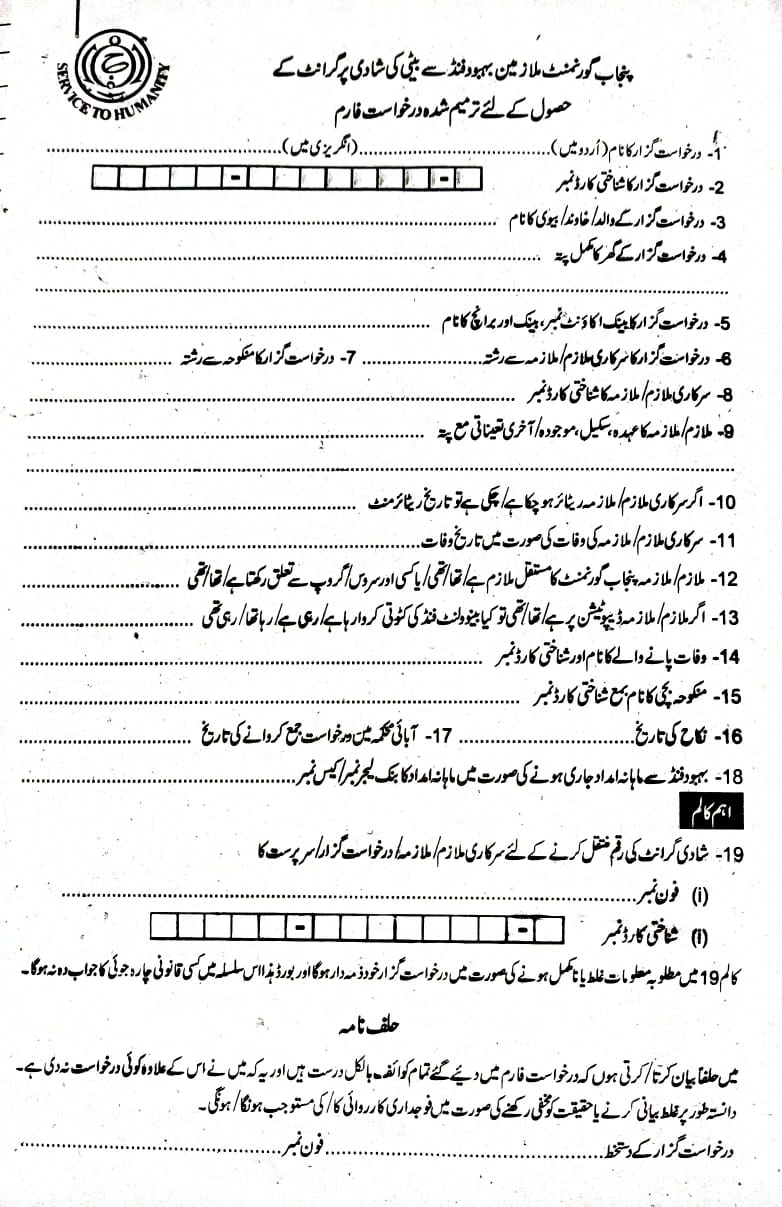 SERVICE TO HUMANITY
پنجاب گورنمنٹ ملازمین بہبود فنڈ سے بیٹی کی شادی پر گرانٹ کے
حصول کے لئے ترمیم شدہ درخواست فارم
1- درخواست گزار کا نام (اُردو میں)..............................(انگریزی میں)..............................
2- درخواست گزار کا شناختی کارڈ نمبر - -
3- درخواست گزار کے والد/خاوند/بیوی کا نام ..............................
4- درخواست گزار کے گھر کا مکمل پتہ ..............................
..............................
5- درخواست گزار کا بینک اکاؤنٹ نمبر، بینک اور برانچ کا نام ..............................
6- درخواست گزار کا سرکاری ملازم/ملازمہ سے رشتہ.................... 7- درخواست گزار کا منکوحہ سے رشتہ ....................
8- سرکاری ملازم/ملازمہ کا شناختی کارڈ نمبر ..............................
9- ملازم/ملازمہ کا عہدہ، سکیل، موجودہ/آخری تعیناتی مع پتہ ..............................
..............................
10- اگر سرکاری ملازم/ملازمہ ریٹائر ہو چکا ہے/چکی ہے تو تاریخ ریٹائرمنٹ ..............................
11- سرکاری ملازم/ملازمہ کی وفات کی صورت میں تاریخ وفات..............................
12- ملازم/ملازمہ پنجاب گورنمنٹ کا مستقل ملازم ہے/تھا/تھی/یا کسی اور سروس/گروپ سے تعلق رکھتا ہے/تھا/تھی ....................
13- اگر ملازم/ملازمہ ڈیپوٹیشن پر ہے/تھا/تھی تو کیا بینوولنٹ فنڈ کی کٹوتی کروا رہا ہے/رہی ہے/رہا تھا/رہی تھی ....................
14- وفات پانے والے کا نام اور شناختی کارڈ نمبر ..............................
15- منکوحہ بچی کا نام بمع شناختی کارڈ نمبر ..............................
16- نکاح کی تاریخ.................... 17- آبائی محکمہ میں درخواست جمع کروانے کی تاریخ ....................
18- بہبود فنڈ سے ماہانہ امداد جاری ہونے کی صورت میں ماہانہ امداد کا بنک لیجر نمبر/کیس نمبر..............................
اہم کالم
19- شادی گرانٹ کی رقم منتقل کرنے کے لئے سرکاری ملازم/ملازمہ/درخواست گزار/سرپرست کا
(i) فون نمبر..............................
(i) شناختی کارڈ نمبر - -
کالم 19 میں مطلوبہ معلومات غلط یا نامکمل ہونے کی صورت میں درخواست گزار خود ذمہ دار ہوگا اور بورڈ ہذا اس سلسلہ میں کسی قانونی چارہ جوئی کا جواب دہ نہ ہوگا۔
حلف نامہ
میں حلفاً بیان کرتا/کرتی ہوں کہ درخواست فارم میں دیئے گئے تمام کوائف بالکل درست ہیں اور یہ کہ میں نے اس کے علاوہ کوئی درخواست نہ دی ہے۔
دانستہ طور پر غلط بیانی کرنے یا حقیقت کو مخفی رکھنے کی صورت میں فوجداری کارروائی کا/کی مستوجب ہونگا/ہونگی۔
درخواست گزار کے دستخط..............................فون نمبر..............................